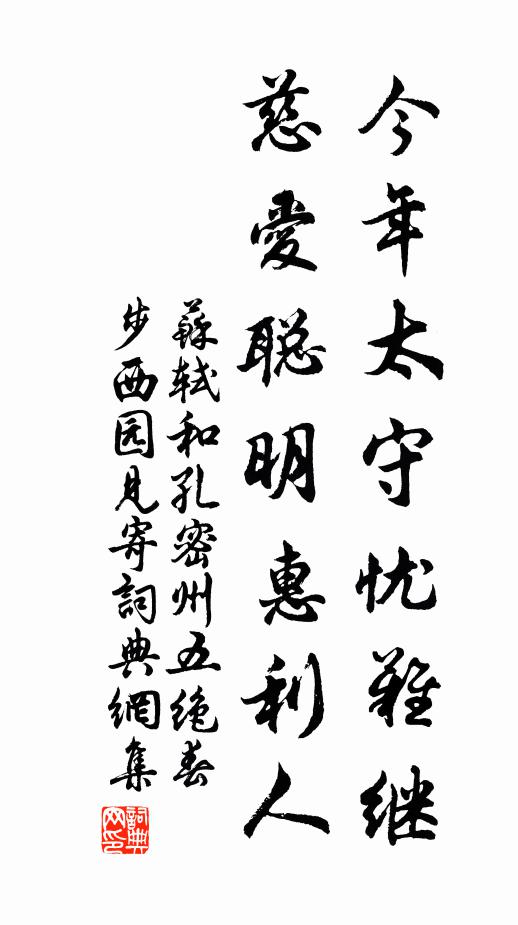 今年太守忧难继
慈爱聪明惠利人
蘇轼和孔密州五绝春
步西园见寄詞典網集
詞典网印